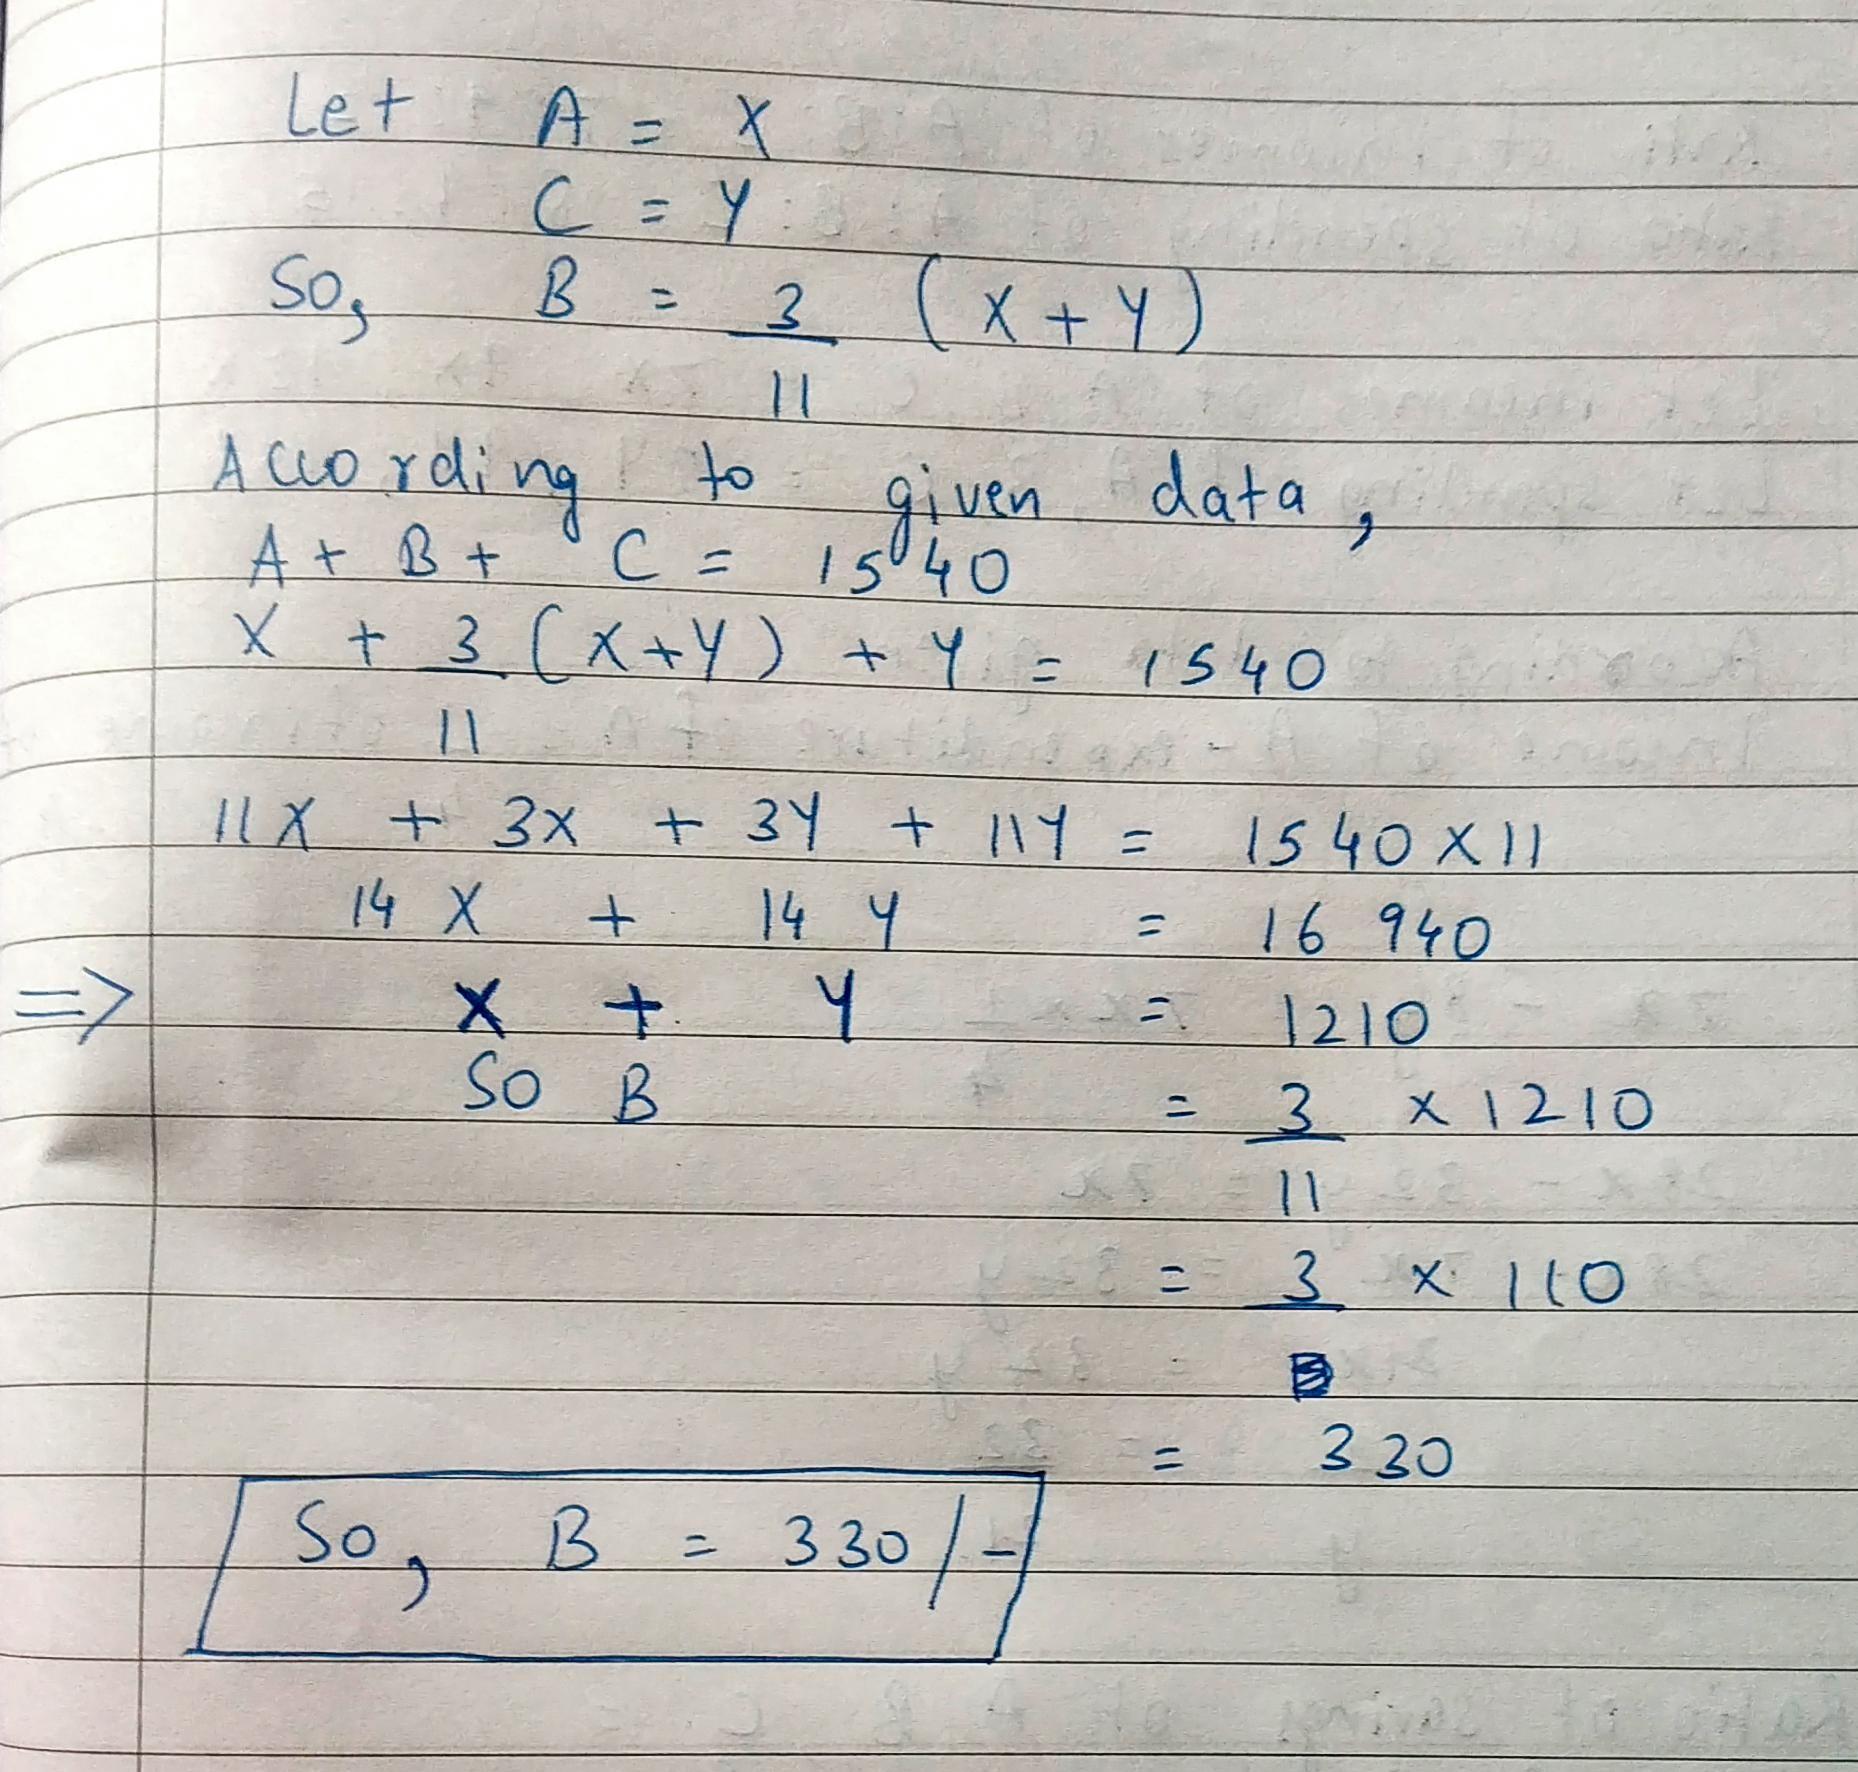 Let A = X
C = Y
So, B = 3/11 (X + Y)
According to given data,
A + B + C = 1540
X + 3/11 (X+Y) + Y = 1540
11X + 3X + 3Y + 11Y = 1540 X 11
14 X + 14 Y = 16 940
=> X + Y = 1210
So B = 3/11 x 1210
= 3 x 110
= 330
So, B = 330/-